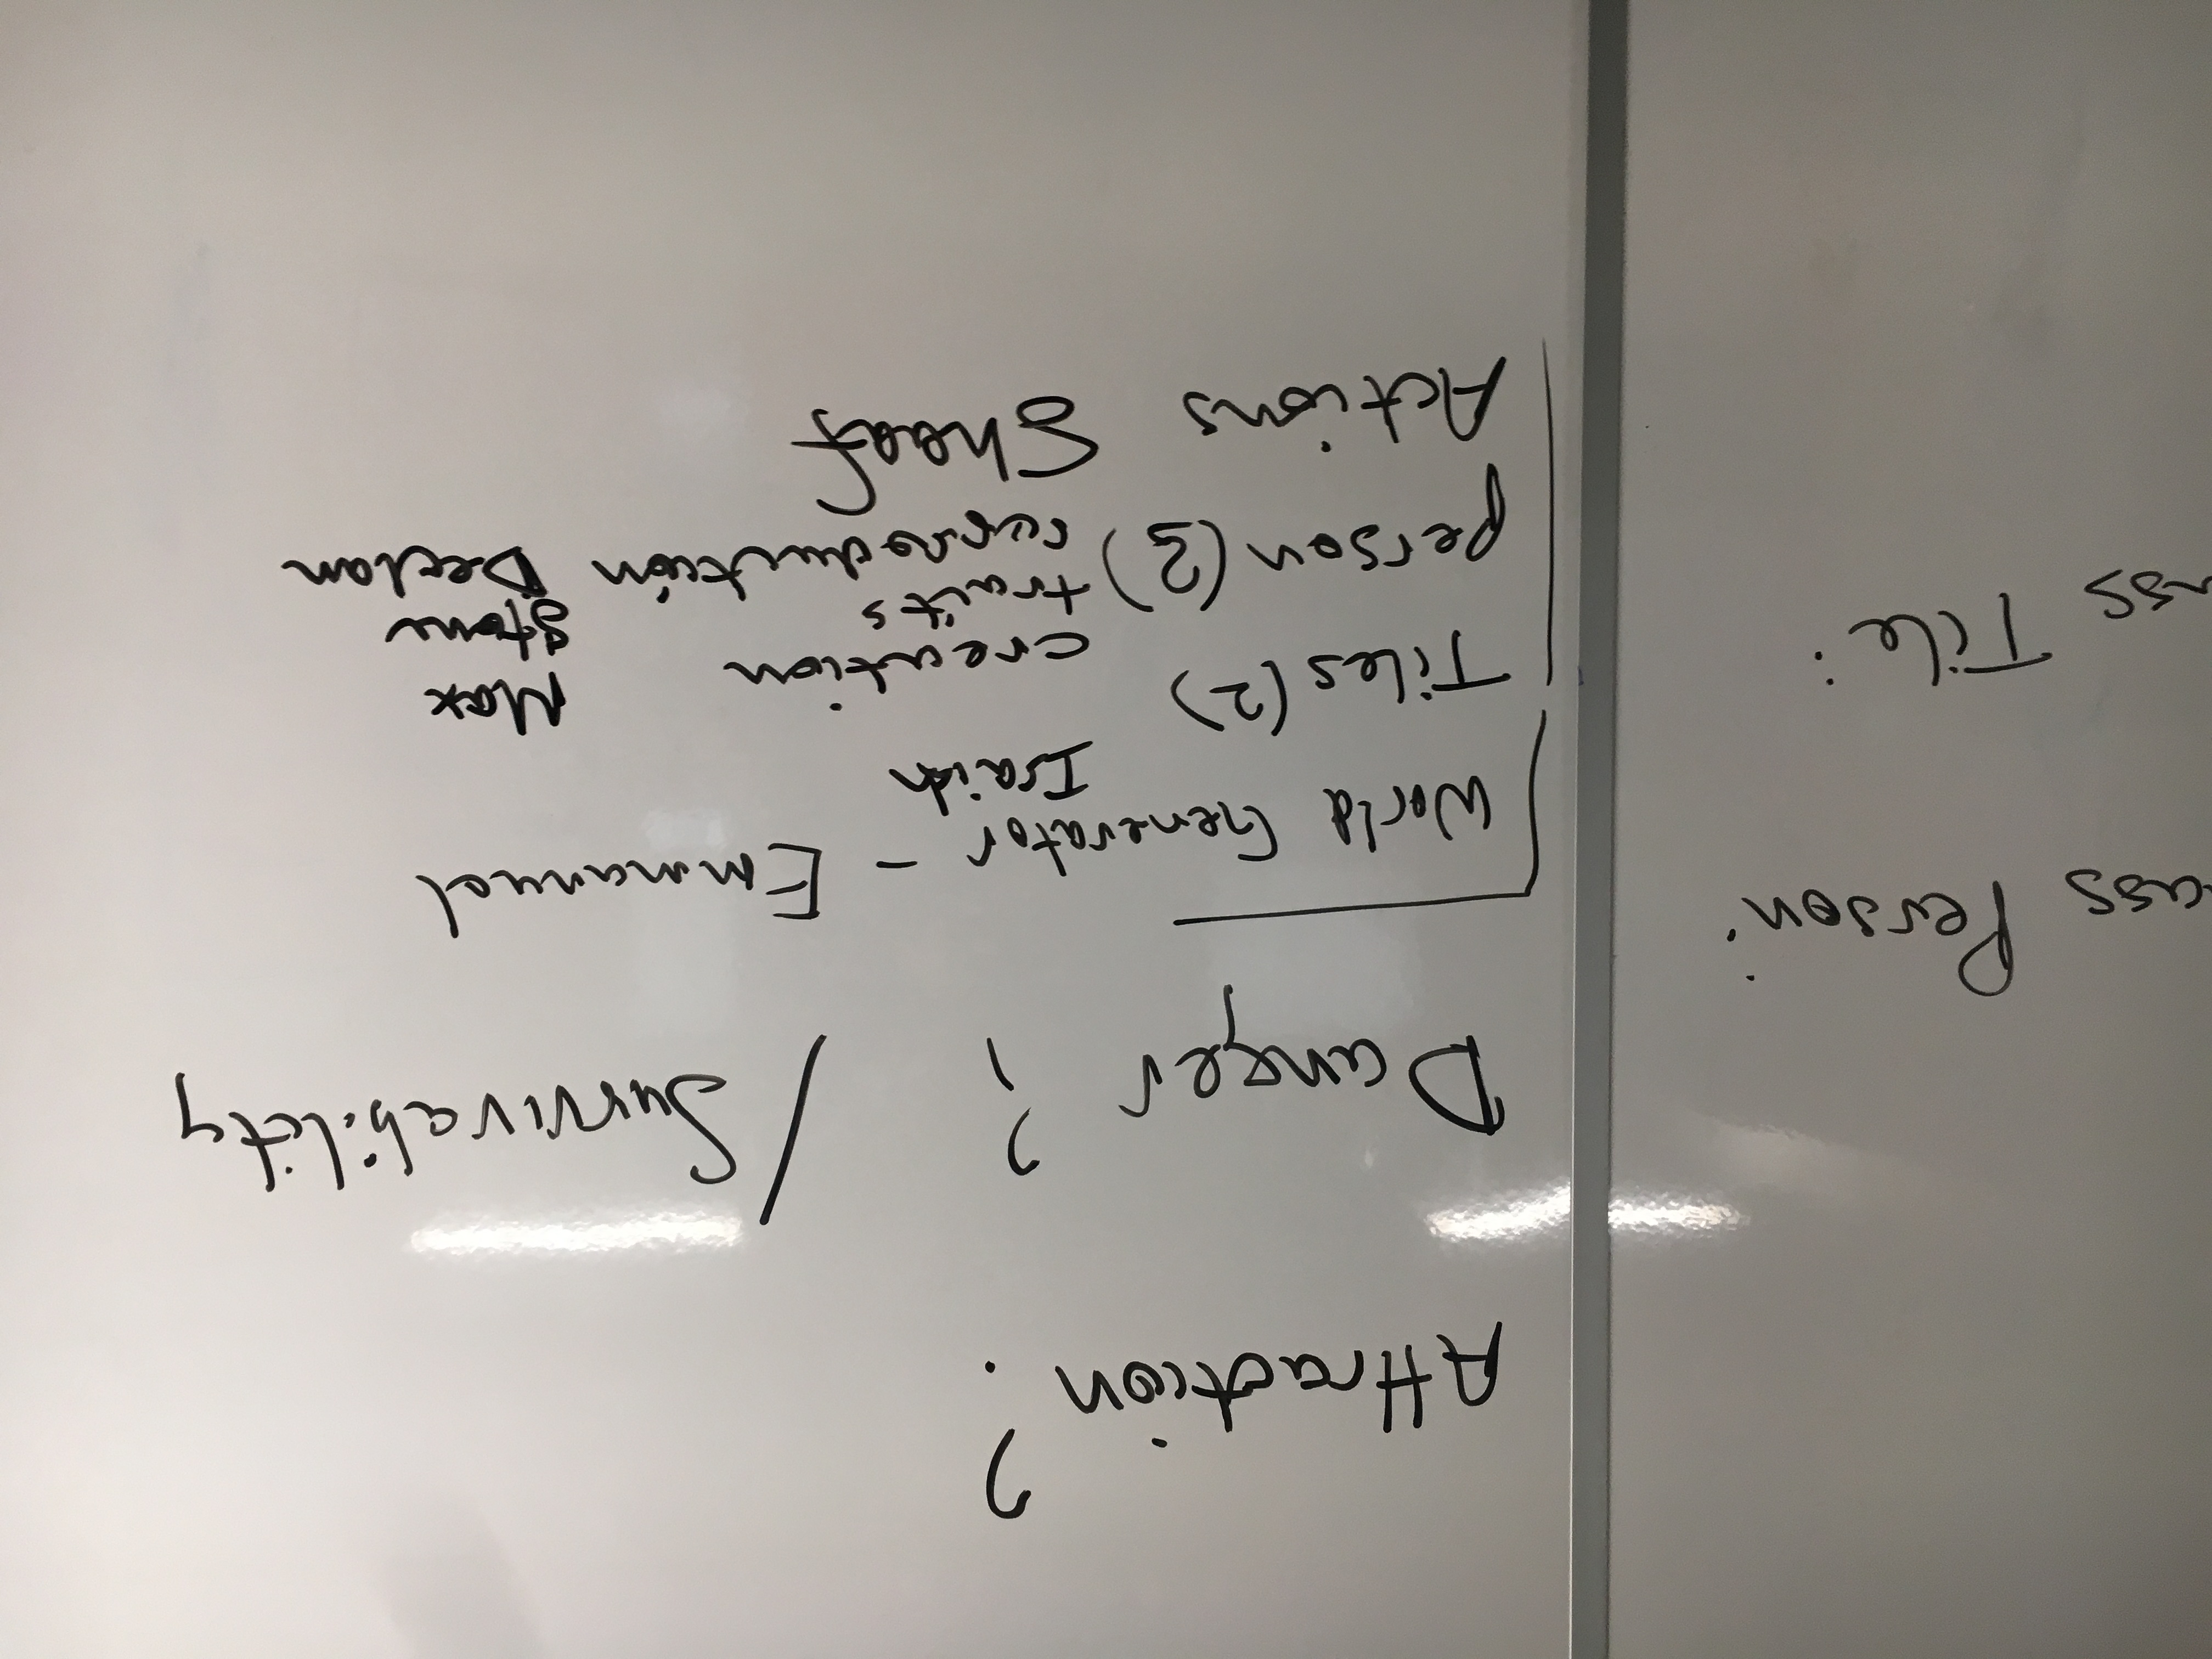 ass Person:
ass Tile:
Attraction?
Danger? / Survivability
World Generator - Emmanuel
Isaiah
Tiles (2)
creation Max
person (3) traits Stone
reproduction Declan
Actions Shaaf